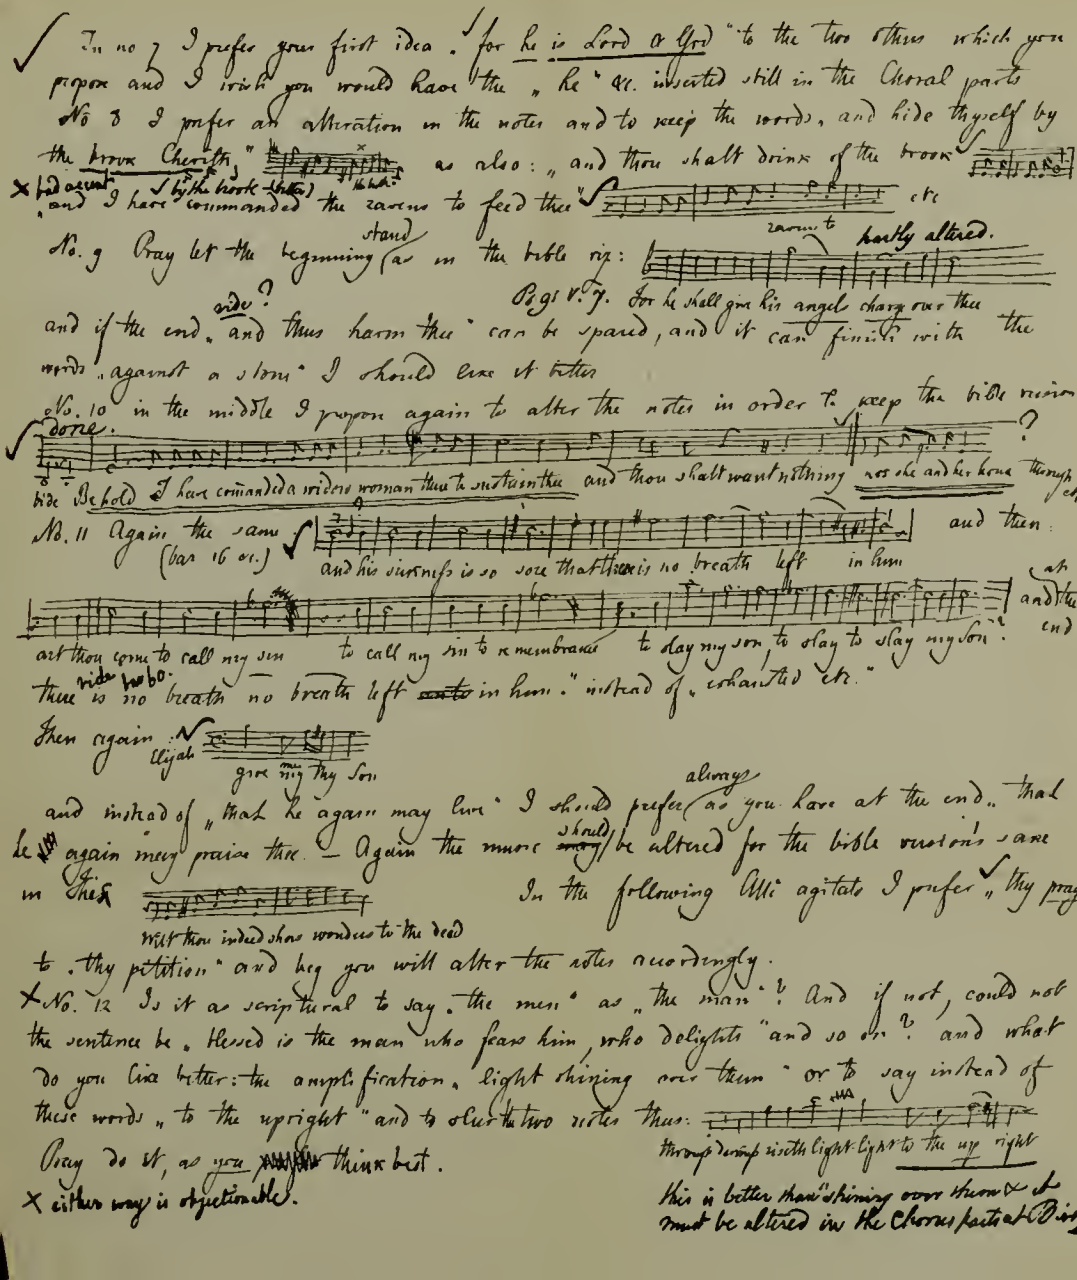 In no 7 I prefer your first idea. "for he is Lord & God" to the two others which you
propose and I wish you would have the „he" &c. inserted still in the Choral parts
No 8 I prefer an alteration in the notes and to keep the words, „and hide thyself by
the brook Cherith," as also: „and thou shalt drink of the brook
x bad accent by the brook (better)
„and I have commanded the ravens to feed thee" etc
ravens to
partly altered.
No. 9 Pray let the beginning stand as in the bible viz:
Ps 91 V. 7. For he shall give his angels charge over thee
vide ?
and if the end „and thus harm thee" can be spared, and it can finish with the
words „against a stone" I should like it better
No. 10 in the middle I propose again to alter the notes in order to keep the bible version
done.
?
Behold I have commanded a widow woman there to sustain thee and thou shalt want nothing nor she and her house through
No. 11 Again the same and then:
(bar 16 &c.)
and his sickness is so sore that there is no breath left in him
and the
end
art thou come to call my sin to call my sin to remembrance to slay my son, to slay to slay my son?
vide
there is no breath no breath left in him." instead of „exhausted etc."
Then again:
Elijah
give me thy son
and instead of „that he again may live" I should prefer always as you have at the end „that
he again may praise thee. — Again the music should be altered for the bible version's sake
in this
In the following Alli agitato I prefer „thy
Wilt thou indeed show wonders to the dead
to „thy petition" and beg you will alter the notes accordingly.
x No. 12 Is it as scriptural to say „the men" as „the man"? And if not, could not
the sentence be „blessed is the man who fears him, who delights" and so on? and what
do you like better: the amplification „light shining over them" or to say instead of
these words „to the upright" and to slur the two notes thus:
light light to the up right
Pray do it, as you think best.
x either way is objectionable.
this is better than "shining over them & it
must be altered in the Chorus parts at